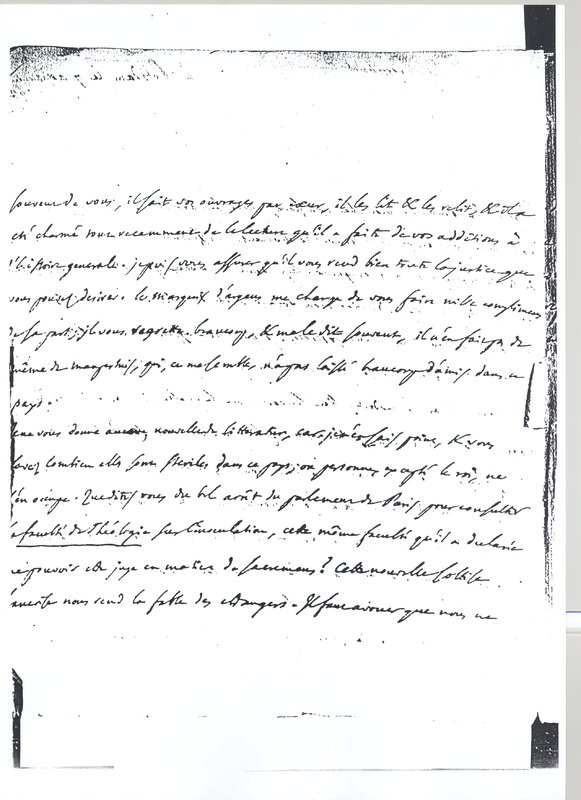 souvenu de vous, il sait vos ouvrages par cœur, il les lit & les relit, & il a
eté charmé tout recemment de la lecture qu'il a faite de vos additions à
l'histoire generale. je puis vous assurer qu'il vous rend bien toute la justice que
vous pouvez desirer. le marquis d'argens me charge de vous faire mille complimens
de sa part; il vous regrette beaucoup, & me le dit souvent, il n'en fait pas de
même de maupertuis, qui, ce me semble, n'a pas laissé beaucoup d'amis dans ce
pays.
je ne vous donne aucune nouvelle de litterature, car je n'en sais point, & vous
savez combien elles sont steriles dans ce pays, où personne, excepté le roi, ne
s'en occupe. Que dites vous du bel arrêt du parlement de Paris pour consulter
la faculté de Théologie sur l'inoculation, cette même faculté qu'il a declarée
ne pouvoir etre juge en matiere de sacremens? Cette nouvelle sottise
nous rend la fable des etrangers. Il faut avouer que nous ne